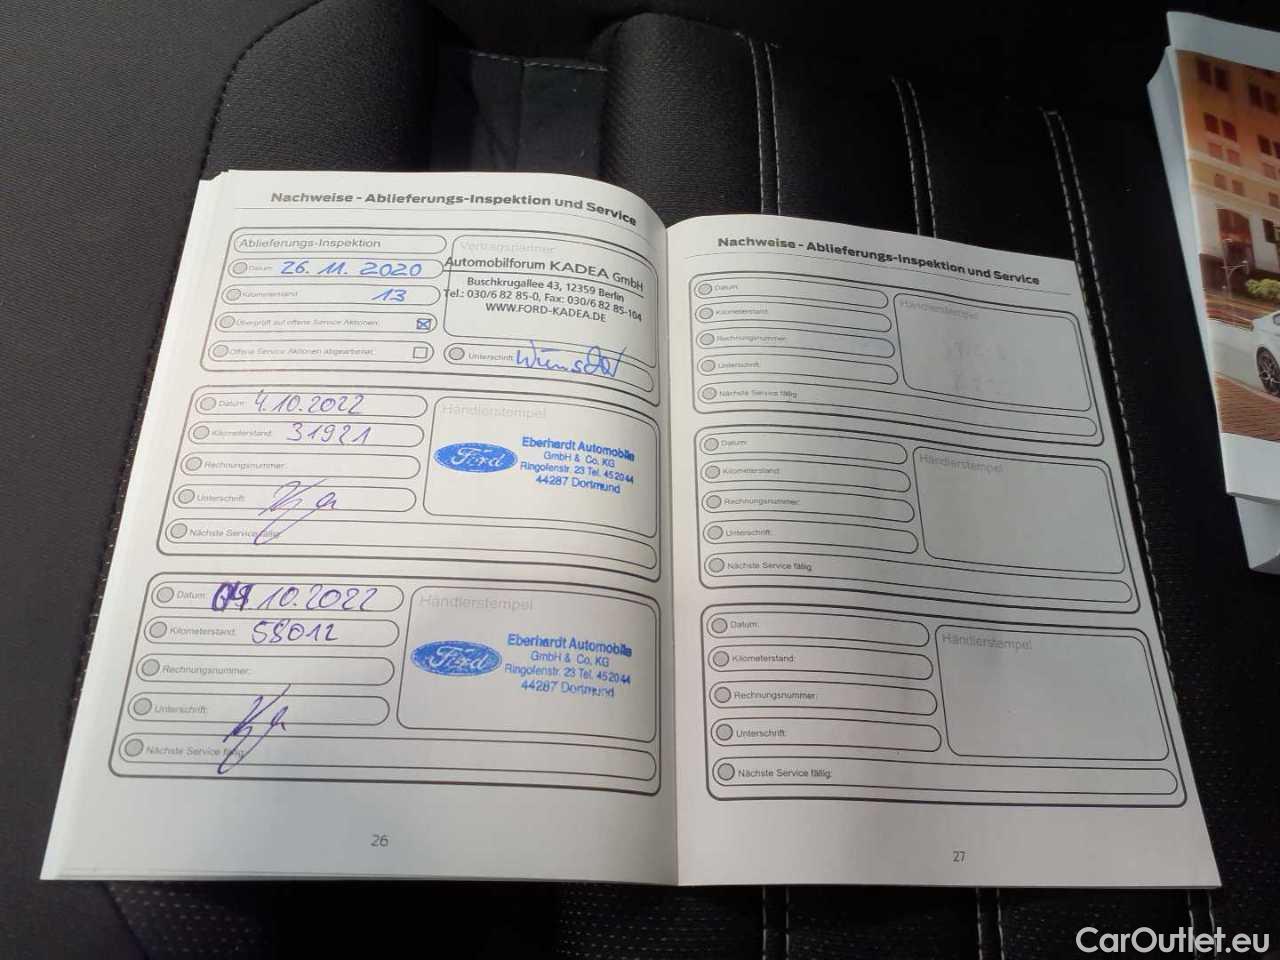 Nachweise - Ablieferungs-Inspektion und Service
Ablieferungs-Inspektion
Vertragspartner
Datum: 26. 11. 2020
Automobilforum KADEA GmbH
Buschkrugallee 43, 12359 Berlin
Tel.: 030/6 82 85-0, Fax: 030/6 82 85-104
WWW.FORD-KADEA.DE
Kilometerstand: 13
Überprüft auf offene Service Aktionen:
Offene Service Aktionen abgearbeitet:
Unterschrift:
Datum: 4.10.2022
Händlerstempel
Kilometerstand: 31921
Ford
Eberhardt Automobile
GmbH & Co. KG
Ringofenstr. 23 Tel. 452044
44287 Dortmund
Rechnungsnummer:
Unterschrift:
Nächste Service fällig:
Datum: 10.2022
Händlerstempel
Kilometerstand: 58012
Ford
Eberhardt Automobile
GmbH & Co. KG
Ringofenstr. 23 Tel. 452044
44287 Dortmund
Rechnungsnummer:
Unterschrift:
Nächste Service fällig:
26
Nachweise - Ablieferungs-Inspektion und Service
Datum:
Händlerstempel
Kilometerstand:
Rechnungsnummer:
Unterschrift:
Nächste Service fällig:
Datum:
Händlerstempel
Kilometerstand:
Rechnungsnummer:
Unterschrift:
Nächste Service fällig:
Datum:
Händlerstempel
Kilometerstand:
Rechnungsnummer:
Unterschrift:
Nächste Service fällig:
27
CarOutlet.eu